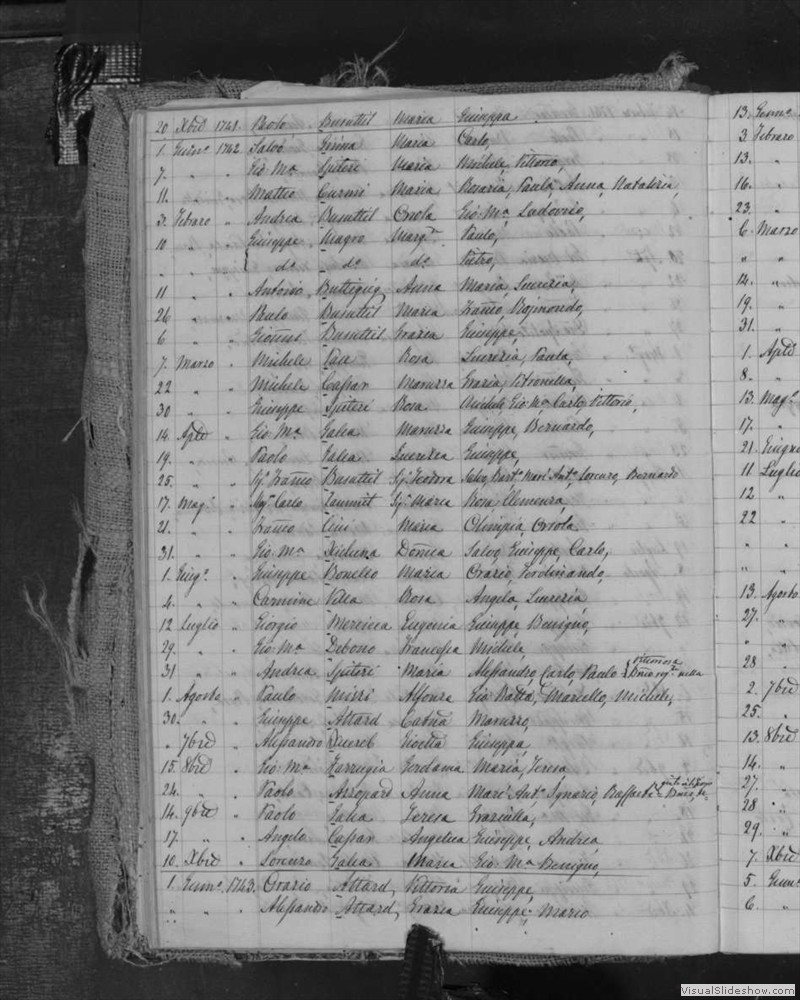 20. Xbre 1741. Paolo Busuttil Maria Giuseppa
1. Genn.o 1742. Salvo Maria Carlo,
7. " " Gio: M.a Spiteri Maria Michele, Vittorio,
11. " " Matteo Curmi Maria Rosaria, Paula, Anna, Natalizia,
3. Febraro " Andrea Busuttil Orsola Gio: M.a Ludovico,
10 " " Giuseppe Magro Marg.ta Paulo,
" " " d.o d.o d.a Pietro,
11 " " Antonio Buttigieg Anna Maria, Lucrezia,
26 " " Paulo Busuttil Maria Raimondo,
6 " " Busuttil Grazia Giuseppe,
7. Marzo " Michele Rosa Lucrezia, Paula,
22 " " Michele Caffar Maruzza Grazia, Petronilla,
30 " " Giuseppe Spiteri Rosa Michele, Gio: M.a Carlo, Vittorio,
14. Aple " Gio: M.a Galea Maruzza Giuseppe, Bernardo,
19. " " Paolo Galea Lucrezia Giuseppe,
25. " " Busuttil Teodora Salvo, Ant.o Lorenzo, Bernardo
17. Mag.o " Carlo Zammit Maria Rosa, Clemenza,
21. " " Maria Olimpia, Orsola.
31. " " Gio: M.a Xicluna Salvo, Giuseppe, Carlo,
1. Giug.o " Giuseppe Bonello Maria Orazio, Ferdinando
4. " " Carmine Vella Rosa Angelo, Lucrezia,
12 Luglio " Giorgio Mercieca Eugenia Giuseppe, Benigno,
29. " " Gio: M.a Debono Francesca Michele
31 " " Andrea Spiteri Maria Alessandro, Carlo, Paulo
1. Agosto " Paulo Mizzi Alfonza Gio: Batta, Marcello, Michele,
30. " " Giuseppe Attard Maruzzo,
" 7bre " Alessandro Xuereb Giuseppa,
15. 8bre " Gio: M.a Farrugia Gerdama Maria, Teresa
24. " " Paolo Anna Ant.o Ignazio, Raffaele
14. 9bre " Paolo Galea Teresa Graziulla,
17. " " Angelo Caffar Angelica Giuseppe, Andrea
10. Xbre " Lorenzo Galea Maria Gio: M.a Benigno,
1. Genn.o 1743. Orazio Attard, Vittoria Giuseppe,
" " Alessandro Attard, Grazia Giuseppe, Mario
13. Genn.o
3. Febraro
13. "
16. "
23. "
6. Marzo
" "
14. "
19. "
31. "
1. Aple
8. "
13. Mag.o
17. "
21. Giugno
11 Luglio
12 "
22 "
" "
" "
13. Agosto
27. "
" "
28 "
2. 7bre
25. "
13. 8bre
14. "
27. "
28 "
29. "
7. Xbre
5. Genn.o
6. "
VisualSlideshow.com